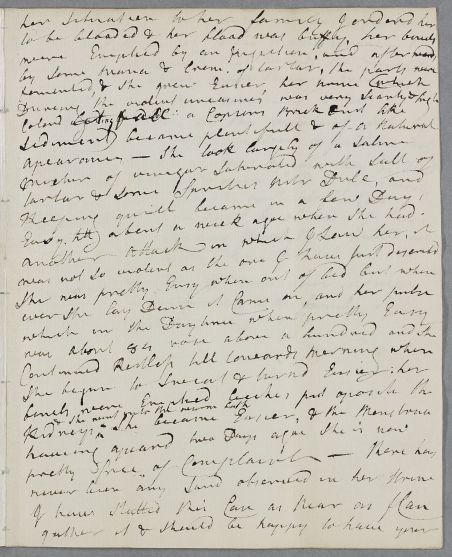 her Situation to her family I ordered her
to be blooded & her blood was buffy, her bowels
were Emptied by an injection, and afterwards
by some manna & Crem. of tartar, the parts were
fomented, & She grew Easier, her urine (which
During the violent uneasiness was very Scanty & high
Colord letting fall a Copious Brick dust like
Sediment) became plentifull & of a Natural
apearance — She took largely of a Saline
mixture of vinegar Saturated with Salt of
tartar & Some Spiritus nitr Dulc, and
Keeping quiett became in a few Days
Easy, till about a week agoe when She had
another attack in which I saw her, it
was not so violent as the one I have just described
She was pretty Easy when out of bed but when
ever She lay Down it Came on, and her pulse
which in the Daytime when pretty Easy
was about 85 rose above a hundred and She
Continued Restless till towards morning when
She begun to Sweat & turnd Easier: her
bowels were Emptied leeches put oposite the
Kidneys & She went into the warm bath She became Easier, & the Menstrua
haveing apeard two Days agoe She is now
pretty free of Complaint — There has
never been any Sand observed in her Urine
I have Stated this Case as Near as I Can
gather it & should be happy to have your